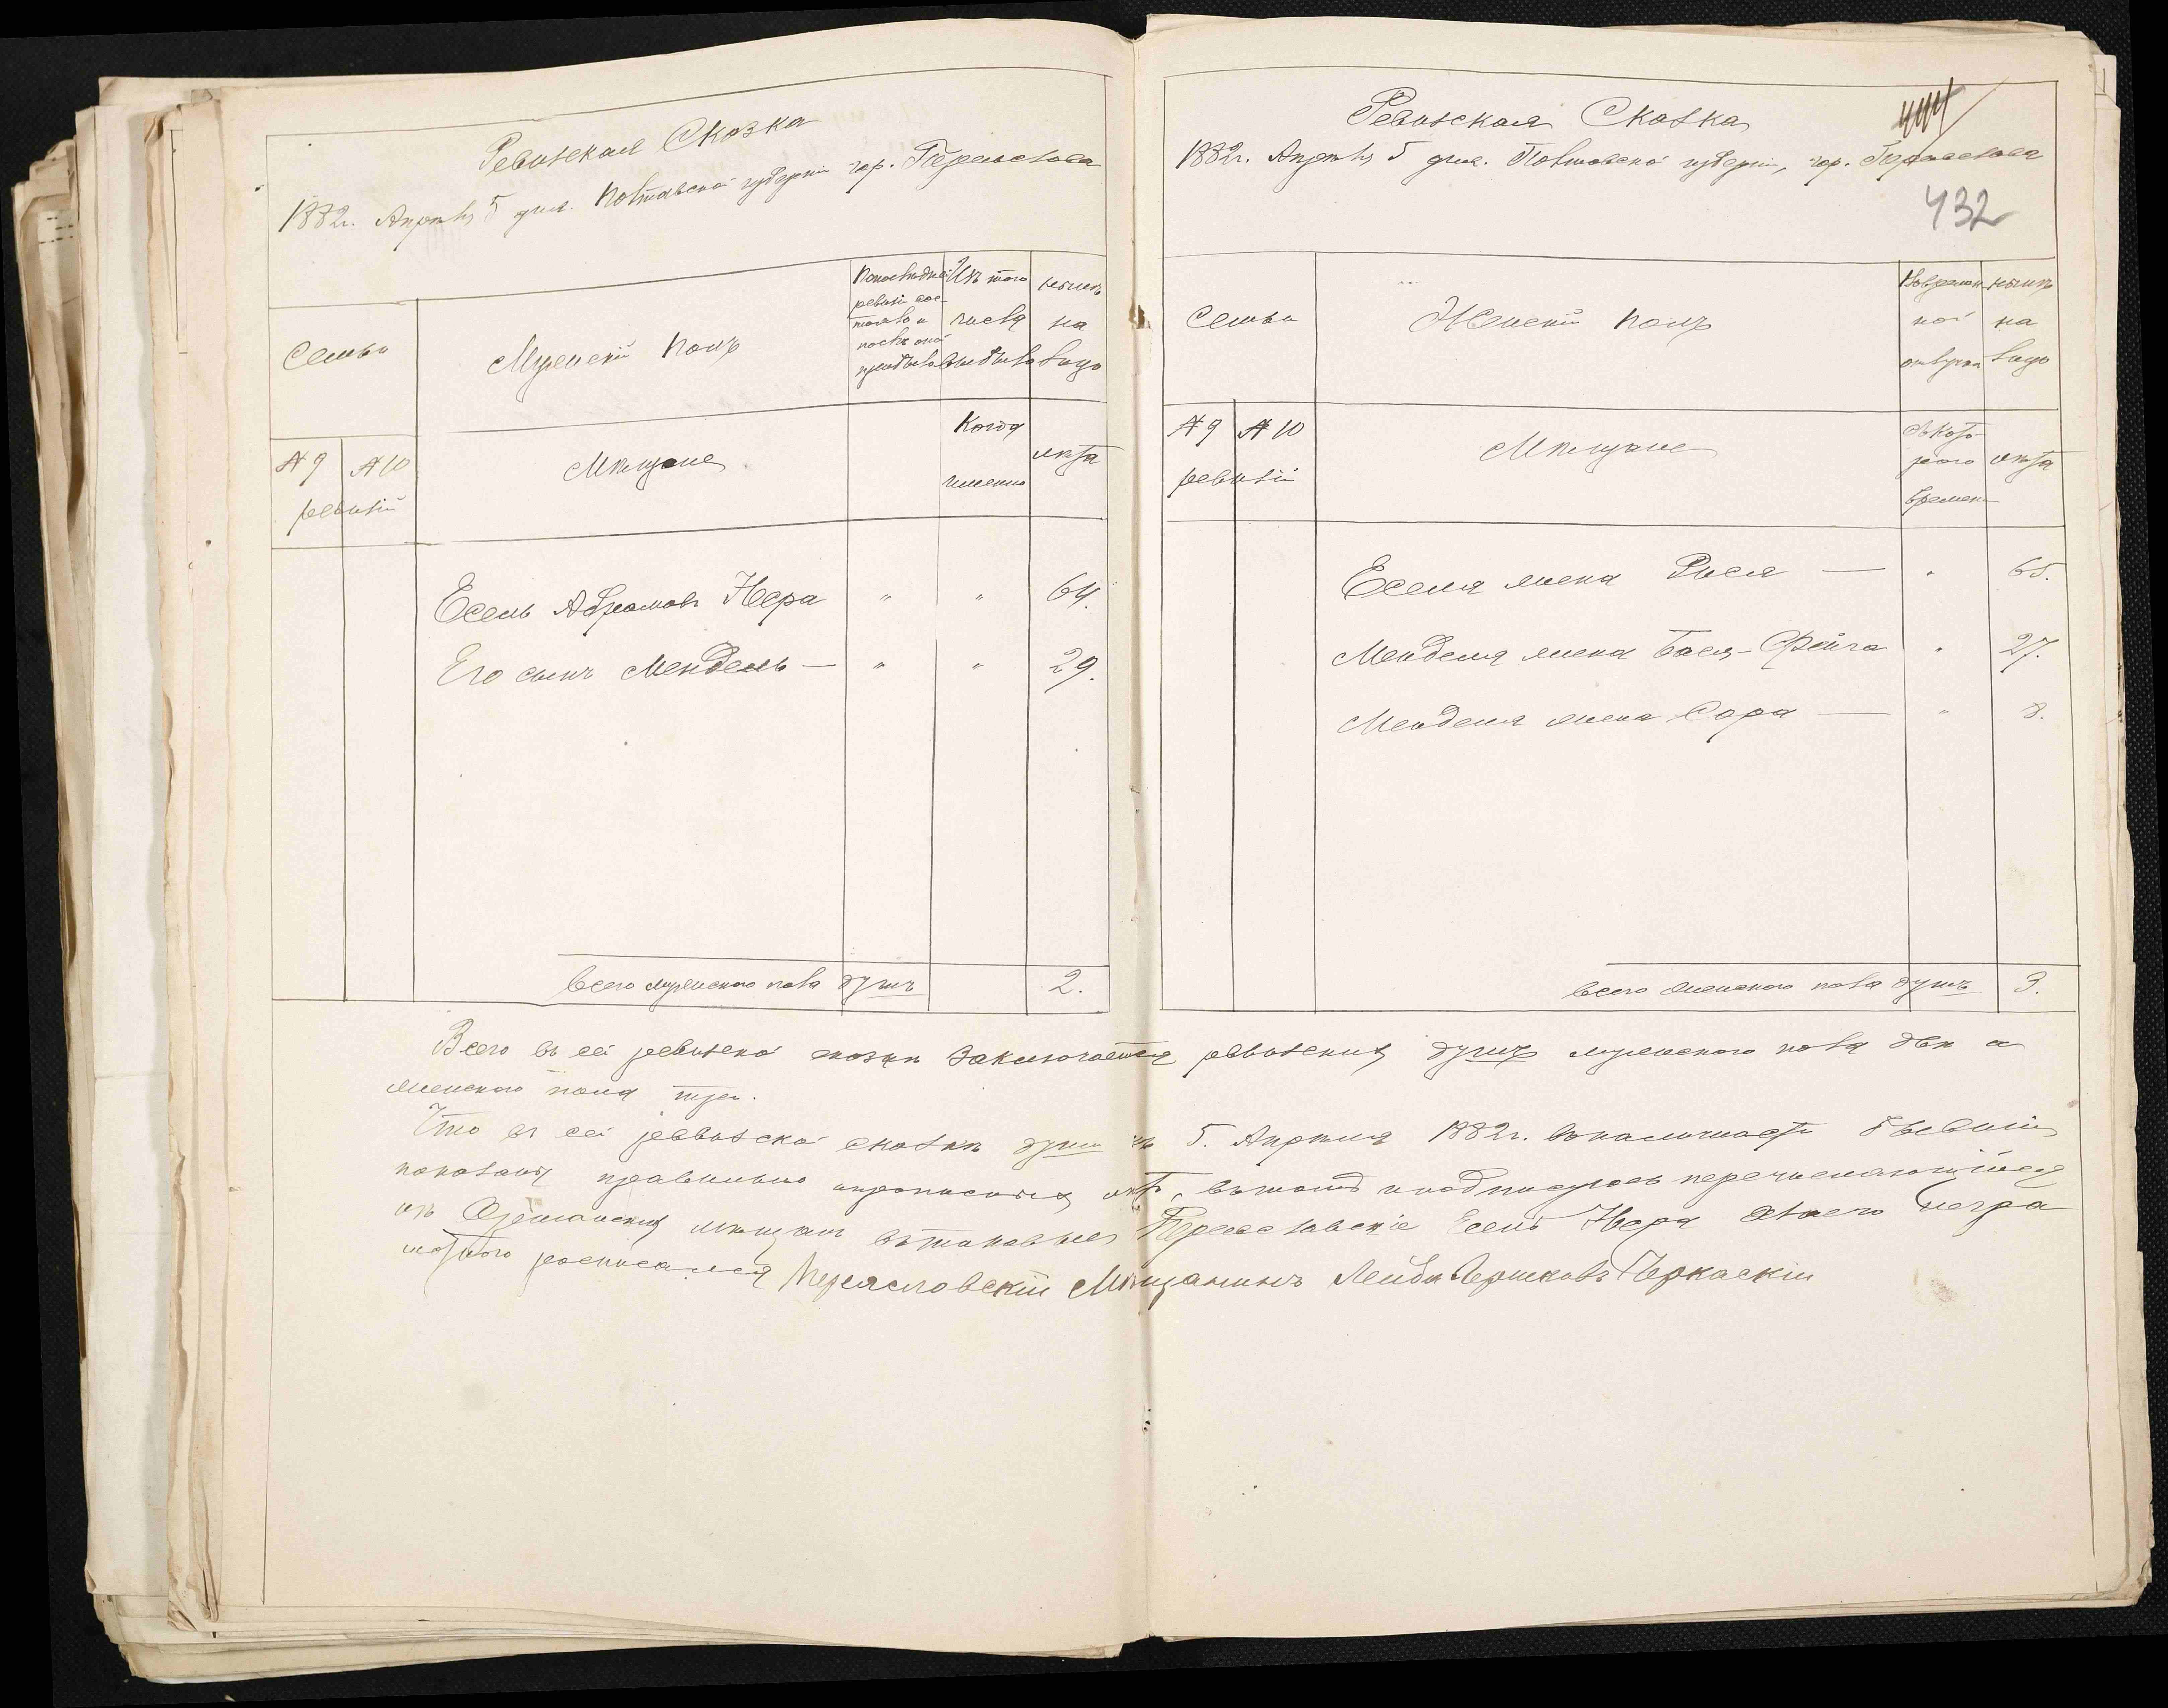 Ревизская Сказка
1882г. Апрѣля 5 дня. Полтавской губерніи гор. Переяслова
Семьи
Мужескій полъ
По последней ревизіи состояло и послѣ оной прибыло
Изъ того числа выбыло
Нынѣ на лицо
№ 9
№ 10
ревизій
Мѣщане
Когда именно
лѣта
Есель Абрамовъ Нера " " 64.
Его сынъ Мендель — " " 29.
Всего мужескаго пола душъ 2.
Ревизская Сказка
1882г. Апрѣля 5 дня. Полтавской губерніи, гор. Переяслова
432
Семьи
Женскій полъ
Во временной отлучкѣ
нынѣ на лицо
№ 9
№ 10
ревизій
Мѣщане
Съ котораго времени
лѣта
Еселя жена Рися — " 65.
Менделя жена Бася-Фейга " 27.
Менделя жена Сора — " 8.
Всего женскаго пола душъ 3.
Всего въ сей ревизской сказкѣ заключается ревизскихъ душъ мужескаго пола двѣ и
женскаго пола три.
Что въ сей ревизской сказкѣ души къ 5. Апрѣля 1882г. въ наличности бывшія
показаны правильно и прописныхъ нѣтъ, въ томъ и подписуюсь перечисляющійся
изъ мѣщанъ въ таковые Переяславскіе Есель Нера а за него неграмотнаго
росписался Переясловскій Мѣщанинъ Лейба Бершковъ Черкаскій